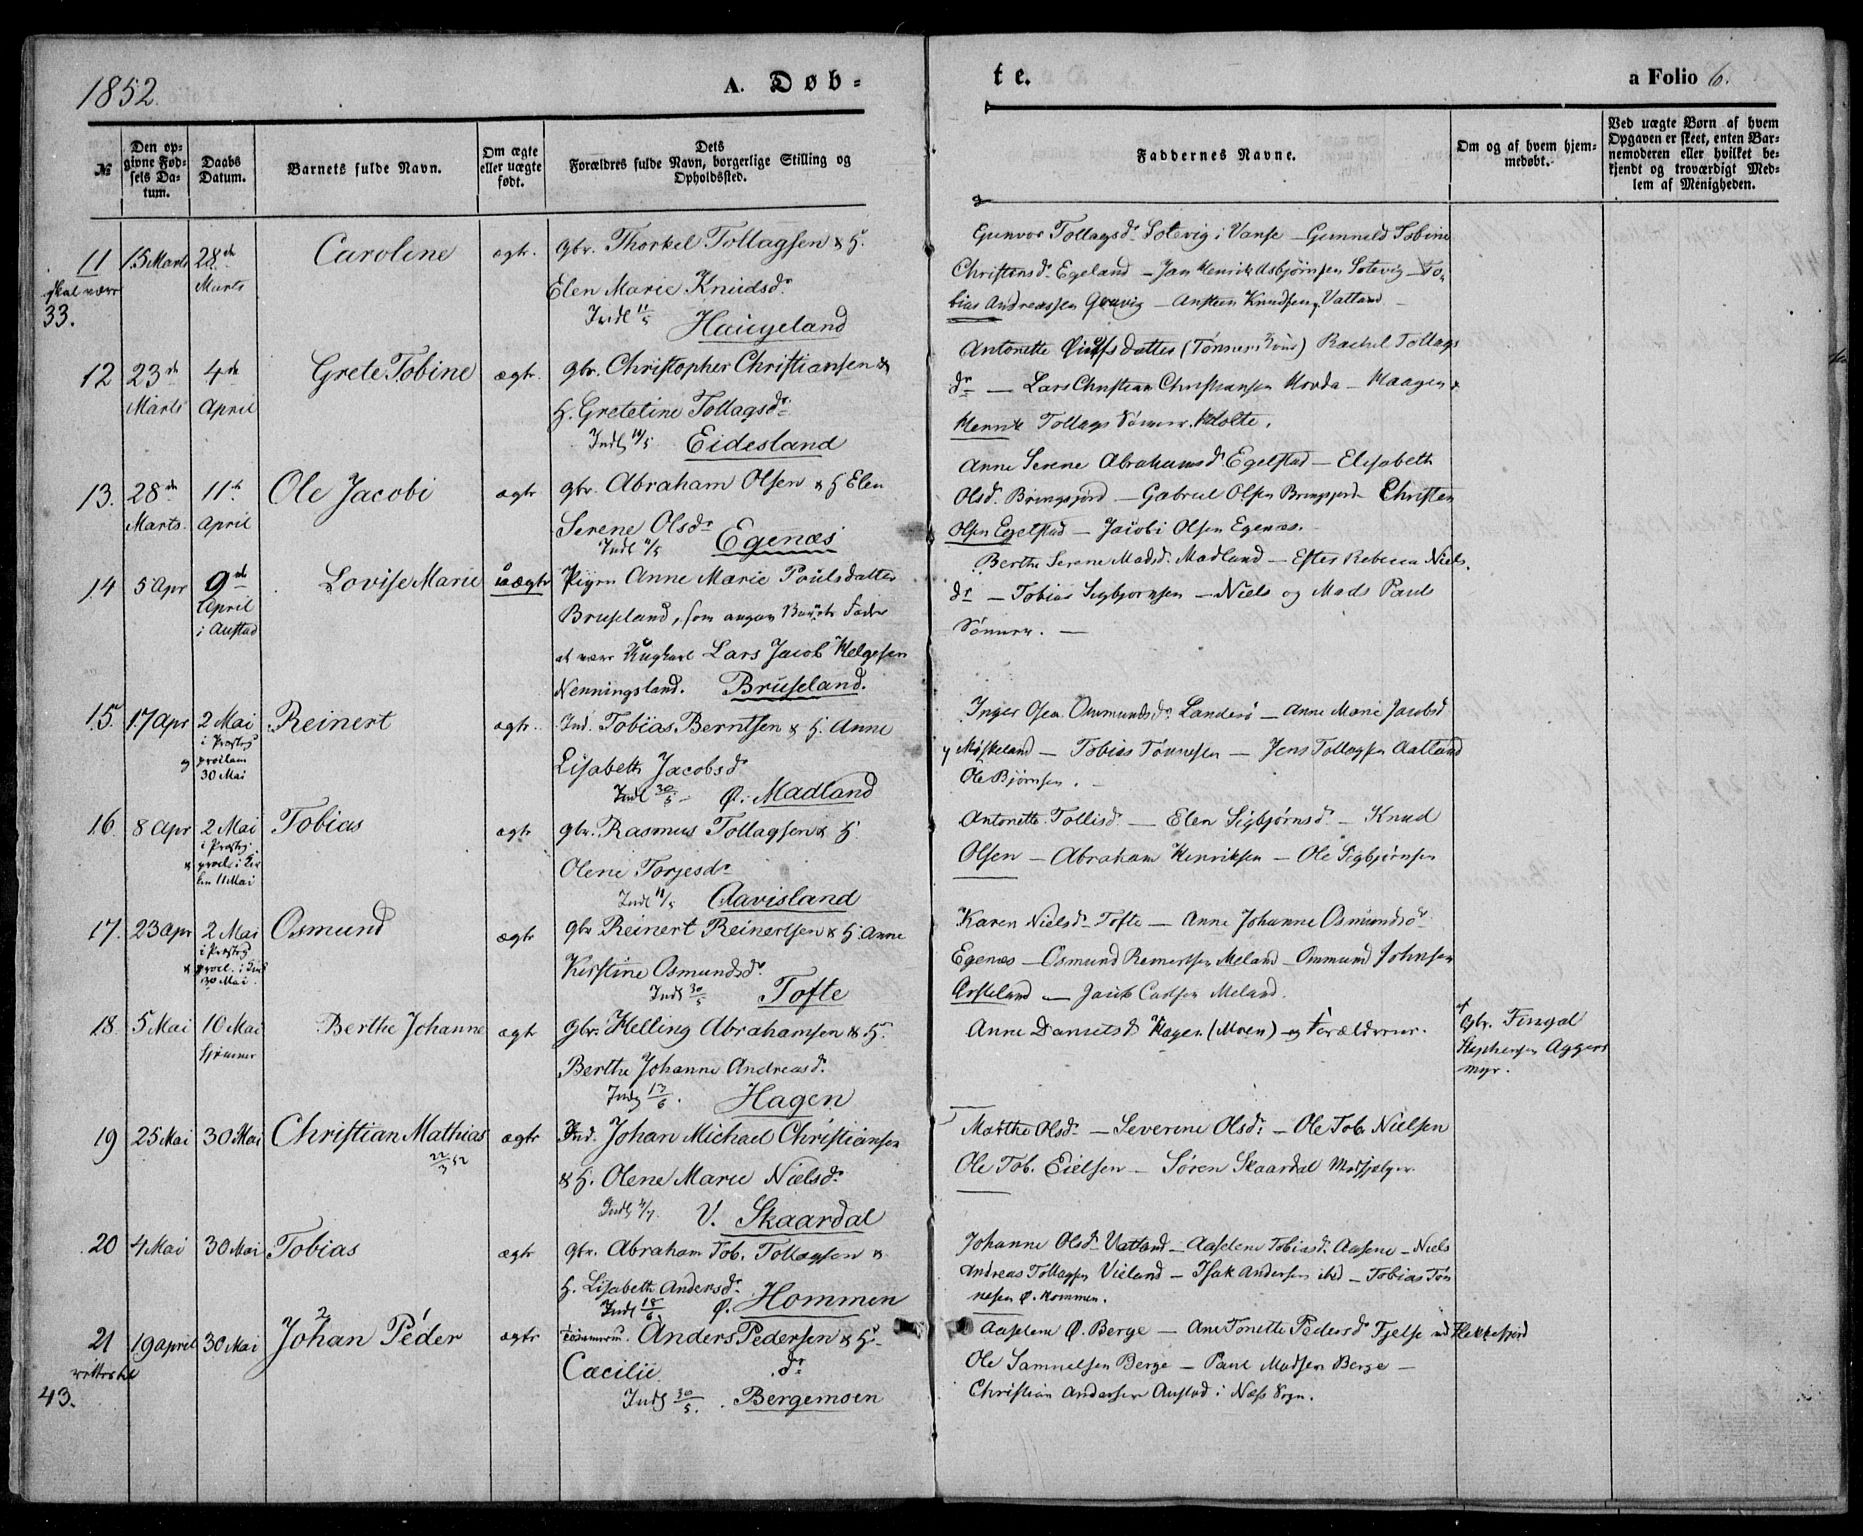 1852.
A. Døb-
te.
a Folio 6.
№
Den op-
givne Fød-
sels Da-
tum.
Daabs
Datum.
Barnets fulde Navn.
Om ægte
eller uægte
født.
Dets
Forældres fulde Navn, borgerlige Stilling og
Opholdssted.
Faddernes Navne.
Om og af hvem hjem-
medøbt.
Ved uægte Børn af hvem
Opgaven er skeet, enten Bar-
nemoderen eller hvilket be-
kjendt og troværdigt Med-
lem af Menigheden.
11
skal være
33.
15 Marts
28de
Marts
Caroline
ægte.
Gbr. Thorkel Tollagsen & H.
Elen Marie Knudsdr
Indl 11/5 Haugeland
Gunvor Tollagsdr Sotevig i Vanse – Gunneld Tobine
Christensdr Egeland – Jan Henrik Asbjørnsen Sotevig – To-
bias Andreassen – Ansteen Knudsen Vatland –
12
23de
Marts
4de
April
Grete Tobine
ægte.
Gbr. Christopher Christiansen &
H. Gretetine Tollagsdr
Indl 11/5 Eidesland
Antonette datter (Tønnes Kone) Rachel Tollags
dr – Lars Christian Christiansen Hovda – Haagen &
Henrik Tollags Sønner Holte.
13.
28de
Marts.
11te
April
Ole Jacobi
ægte
Gbr. Abraham Olsen & H Elen
Serene Olsdr
Indl 11/5 Egenæs
Anne Serene Abrahamsdr Egelstad – Elisabeth
Olsd. Bringsjord – Gabriel Olsen Bringsjord – Christen
Olsen Egelstad – Jacobi Olsen Egenæs. –
14
5 Apr
9de
April
i Austad
Lovise Marie
uægte
Pigen Anne Marie Poulsdatter
Bruseland, som angav Barnets Fader
at være Ungkarl Lars Jacob Helgesen
Nenningsland. Bruseland.
Berthe Serene Madsd. Madland – Ester Rebecca Niels
dr – Tobias Sigbjørnsen – Niels og Mads Pauls
Sønner. –
15.
17 Apr
2 Mai
i Præstg
proclam
30 Mai
Reinert
ægte.
Ind. Tobias Berntsen & H. Anne
Lisabeth Jacobsdr
Indl 30/5 – Ø. Madland
Inger Osea Ommundsdr Landerø – Anne Marie Jacobsd
Møskeland – Tobias Tønnesen – Jens Tollagsen Aatland
Ole Bjørnsen.
16.
8 Apr
2 Mai
i Præstg.
& procl. i Kir
ken 11 Mai
Tobias
ægte
Gbr. Rasmus Tollagsen & H.
Olene Torjesdr
Indl 11/5 Aavisland
Antonette Tollisdr – Elen Sigbjørnsd. – Knud
Olsen – Abraham Henriksen – Ole Sigbjørnsen
17.
23 Apr
2 Mai
i Præstg
& procl. i Kirk
30 Mai.
Osmund
ægte
Gbr Reinert Reinertsen & H. Anne
Kirstine Osmundsdr.
Indl 30/5 Tofte
Karen Nielsdr Tofte – Anne Johanne Osmundsdr
Egenæs – Osmund Reinertsen Meland – Ommund Johnsen
– Jacob Carlsen Meland.
18.
5 Mai
10 Mai
hjemme
Berthe Johanne
ægte
Gbr. Helling Abrahamsen & H.
Berthe Johanne Andreasdr.
Indl 13/6. Hagen
Anne Danielsdr Hagen (Moen) – og Forældrene.
af
Gbr. Fingal
Stephensen Agger
myr.
19
25 Mai
30 Mai
Christian Mathias
22/3 52
ægte
Ind. Johan Michael Christiansen
& H. Olene Marie Nielsdr
Indl 4/7 V. Skaardal
Marthe Olsdr – Severene Olsdr – Ole Tob. Nielsen
Ole Tob. Eielsen – Søren Skaardal Medhjælper.
20
4 Mai
30 Mai
Tobias
ægte
Gbr. Abraham Tob. Tollagsen &
H. Lisabeth Andersdr
Indl 18/6 Ø. Hommen
Johanne Olsdr Vatland – Aaselene Tobiasdr Aasene – Niels
Andreas Tollagsen Vieland – Isak Andersen ibid – Tobias Tøn
nesen Ø. Hommen.
21
rettes til
43.
19 April
30 Mai
2
Johan Peder
ægte
Anders Pedersen & H.
Cæcilie dr
Indl 30/5. Bergemoen
Aaselene Ø. Berge – Ane Tonette Pedersd Fjelse ved Flekkefjord
Ole Samuelsen Berge – Paul Madsen Berge –
Christian Andersen Austad i Næs Sogn.